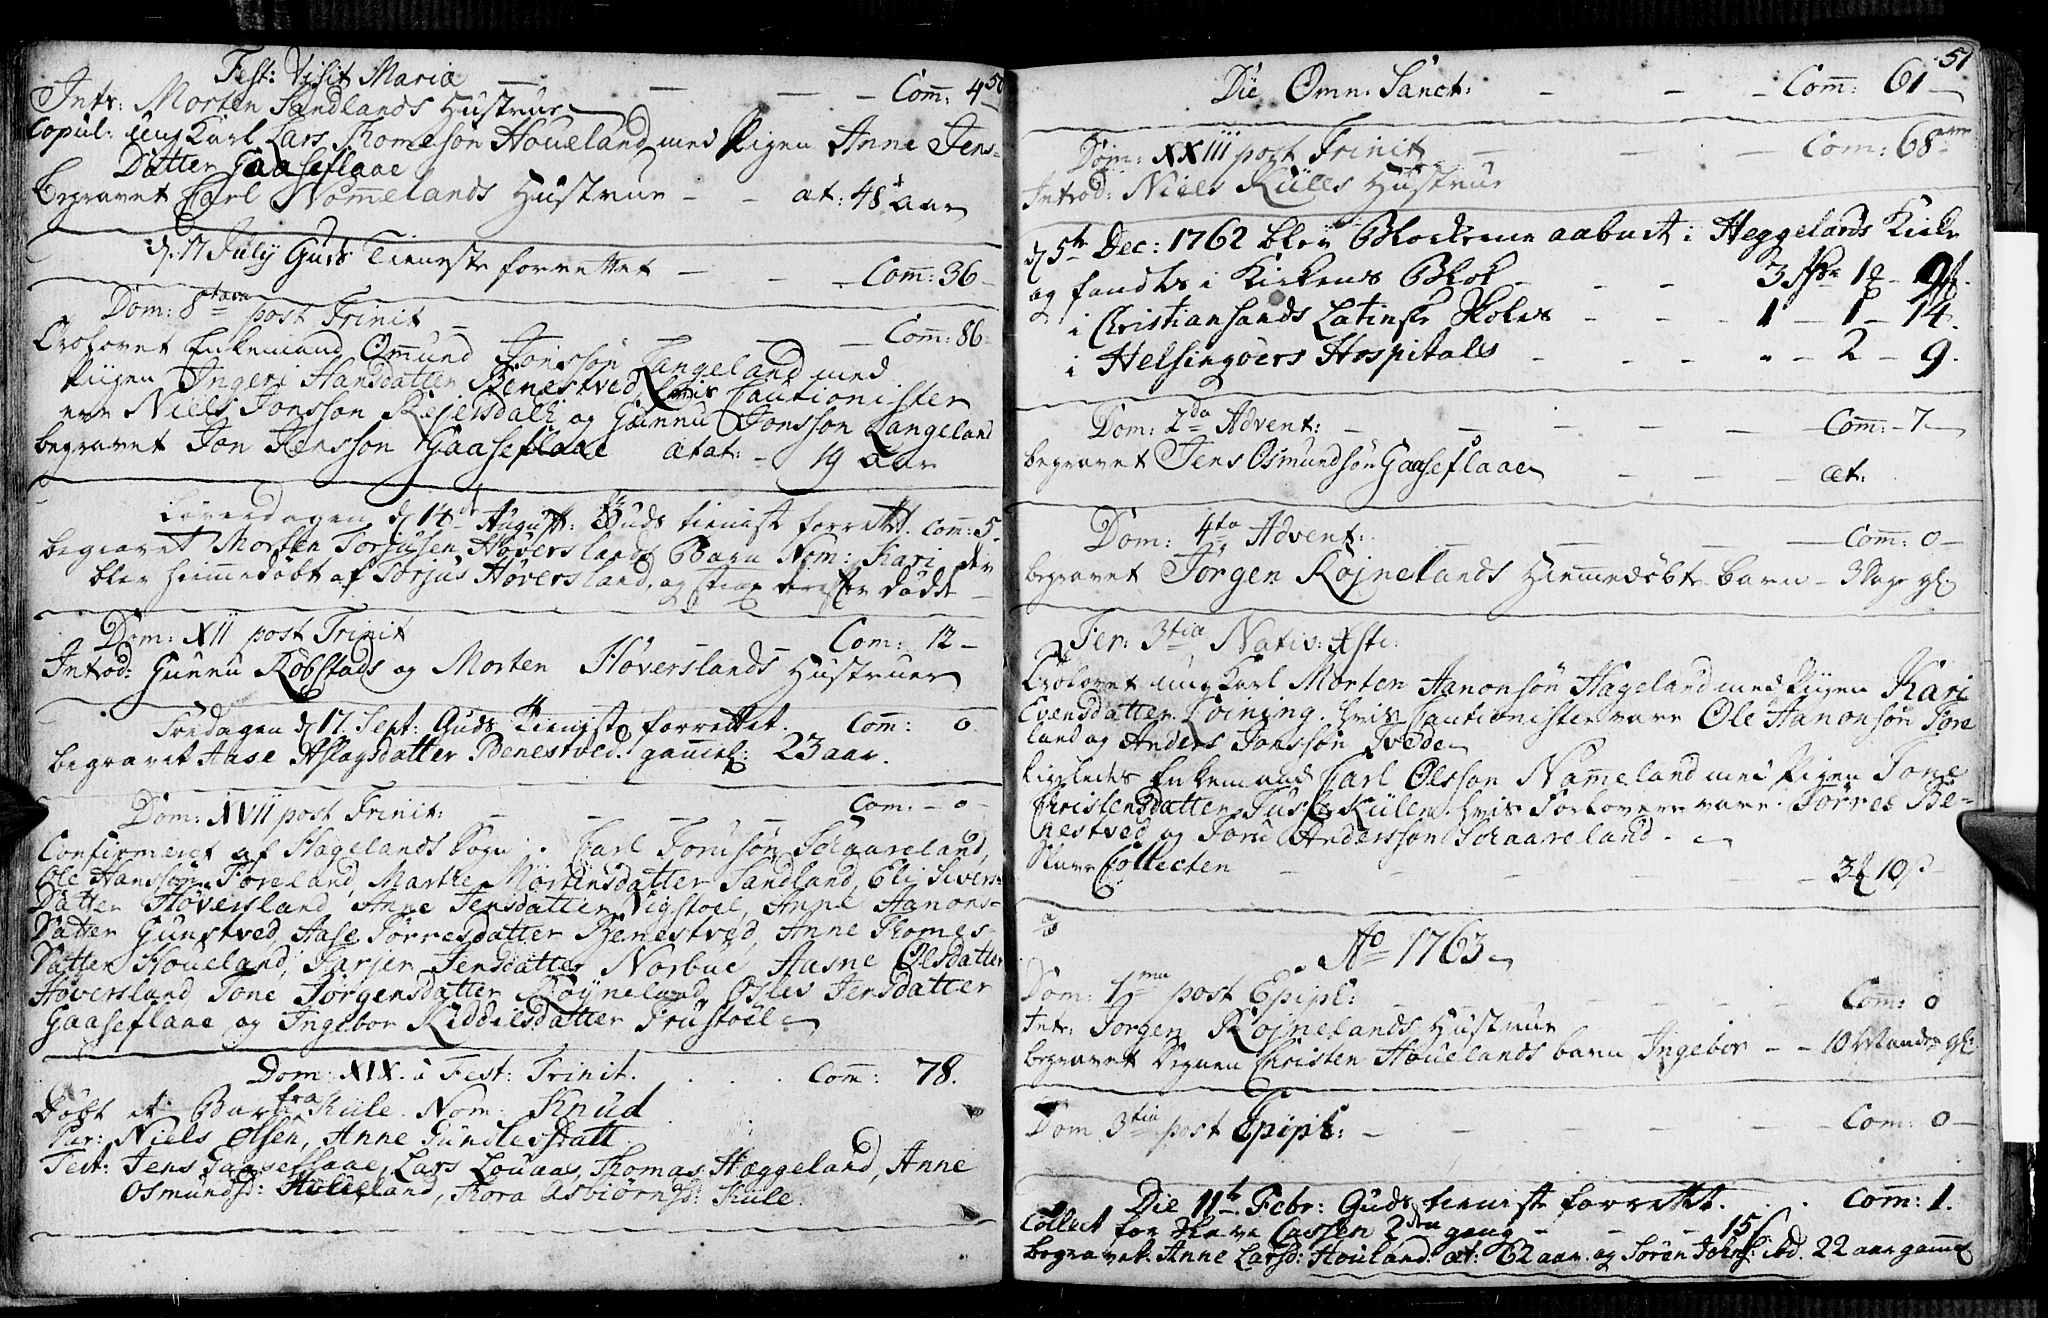 50
Fest: Visit Mariæ — — — — Com: 4
Intr: Morten Sandlands Hustrue
Copul: ung Karl Lars Thomesøn Houeland med Pigen Anne Jens-
Datter Gaaseflaae
Begravet Carl Nommelands Hustrue — — æt: 48 aar
d. 17 July Guds Tieneste forrettet — — — Com: 36
Dom: 8tava post Trinit — — — Com: 86
Trolovet Enkemand Omund Jonssøn Langeland med
Piigen Ingeri Hansdatter Benestved, hvis Cautionister
ere Niels Jonssøn Kejersdall og Gunnu Jonssøn Langeland
begravet Jon Jensson Gaaseflaae ætat: — 19 aar
Løverdagen d 14 August: Guds tieniste forrettet. Com: 5
begravet Morten Torjusen Høverslands Barn Nom: Kari der
blev hiemmedøbt af Torjus Høversland, og strax derefter døde
Dom: XII post Trinit — — — Com: 12
Introd: Gunnu Robstads og Morten Høverslands Hustruer
Fredagen d 17. Sept: Guds Tieniste forrettet. Com: 0
begravet Aase Aslagsdatter Benestved. gammel: 23 aar.
Dom: XVII post Trinit: — — — — Com: 0
Confirmeret af Hagelands Sogn: Carl Torusøn Schaareland,
Ole Hansson Foreland, Marthe Mortensdatter Sandland, Eli Sivers-
Datter Høversland, Anne Jensdatter Vigstoel, Anne Aanons-
Datter Gunstved, Aase Torresdatter Benestved, Anne Thomes-
Datter Houeland, Tarjer Jensdatter Norbue, Aasne Olsdatter
Høversland, Tone Jørgensdatter Røyneland, Osler Jensdatter
Gaaseflaae og Ingebor Kiddilsdatter Frustoel
Dom: XIX. á Fest: Trinit. . . . Com: 78.
Døbt et Barn fra Kule. Nom: Knud
Par: Niels Olsen, Anne Gundlesdatt.
Test: Jens Gaaseflaae, Lars Louaas, Thomas Hæggeland, Anne
Osmundsd: Houeland, Thora Asbiørnsd: Kule.
51
Die Omn: Sanct: — — — Com: 61
Dom: XXIII post Trinit — — — Com: 68
Introd: Niels Kulls Hustrue
d 5te Dec: 1762 blev Blockerne aabnet i Heggelands Kirke
og fandtes i Kirkens Blok — — — 3 1 9
i Christiansands Latinske Skoles — — — 1 — 1 — 14.
i Helsingøers Hospitals — — — „ — 2 — 9.
Dom: 2da Advent: — — — — Com: 7
begravet Jens Osmundsøn Gaaseflaae — — — æt:
Dom: 4ta Advent: — — — Com: 0
begravet Jørgen Røjnelands Hiemmedøbte barn — 3 Dage gl:
Fer: 3tia Nativ: Xsti:
Trolovet ung Karl Morten Aanonsøn Hageland med Piigen Kari
Evensdatter Loining. hvis Cautionister vare Ole Aanonsøn Fore
land og Anders Jonssøn Tvede
Ligeledes Enkemand Carl Olsson Nommeland med Pigen Tone
Christensdatter Kulen. hvis Forlovere vare. Torres Be-
nestved og Toru Andersson Schaareland.
Skure Collecten — — — 3 10
Ao 1763
Dom: 1ma post Epiph: — — — — Com: 0
Intr: Jorgen Røjnelands Hustrue
begravet Degnen Christen Houelands barn Ingebor — — 10 Maander gl:
Dom 3tia post Epiph: — — — — Com: 0
Die 11te Febr: Guds tieniste forrettet. . . Com: 1.
Collect for Cassen 2den gang — — — 15
begravet: Anne Larsd: Houland. æt: 62 aar. og Søren Johns: ibd. 22 aar gammel